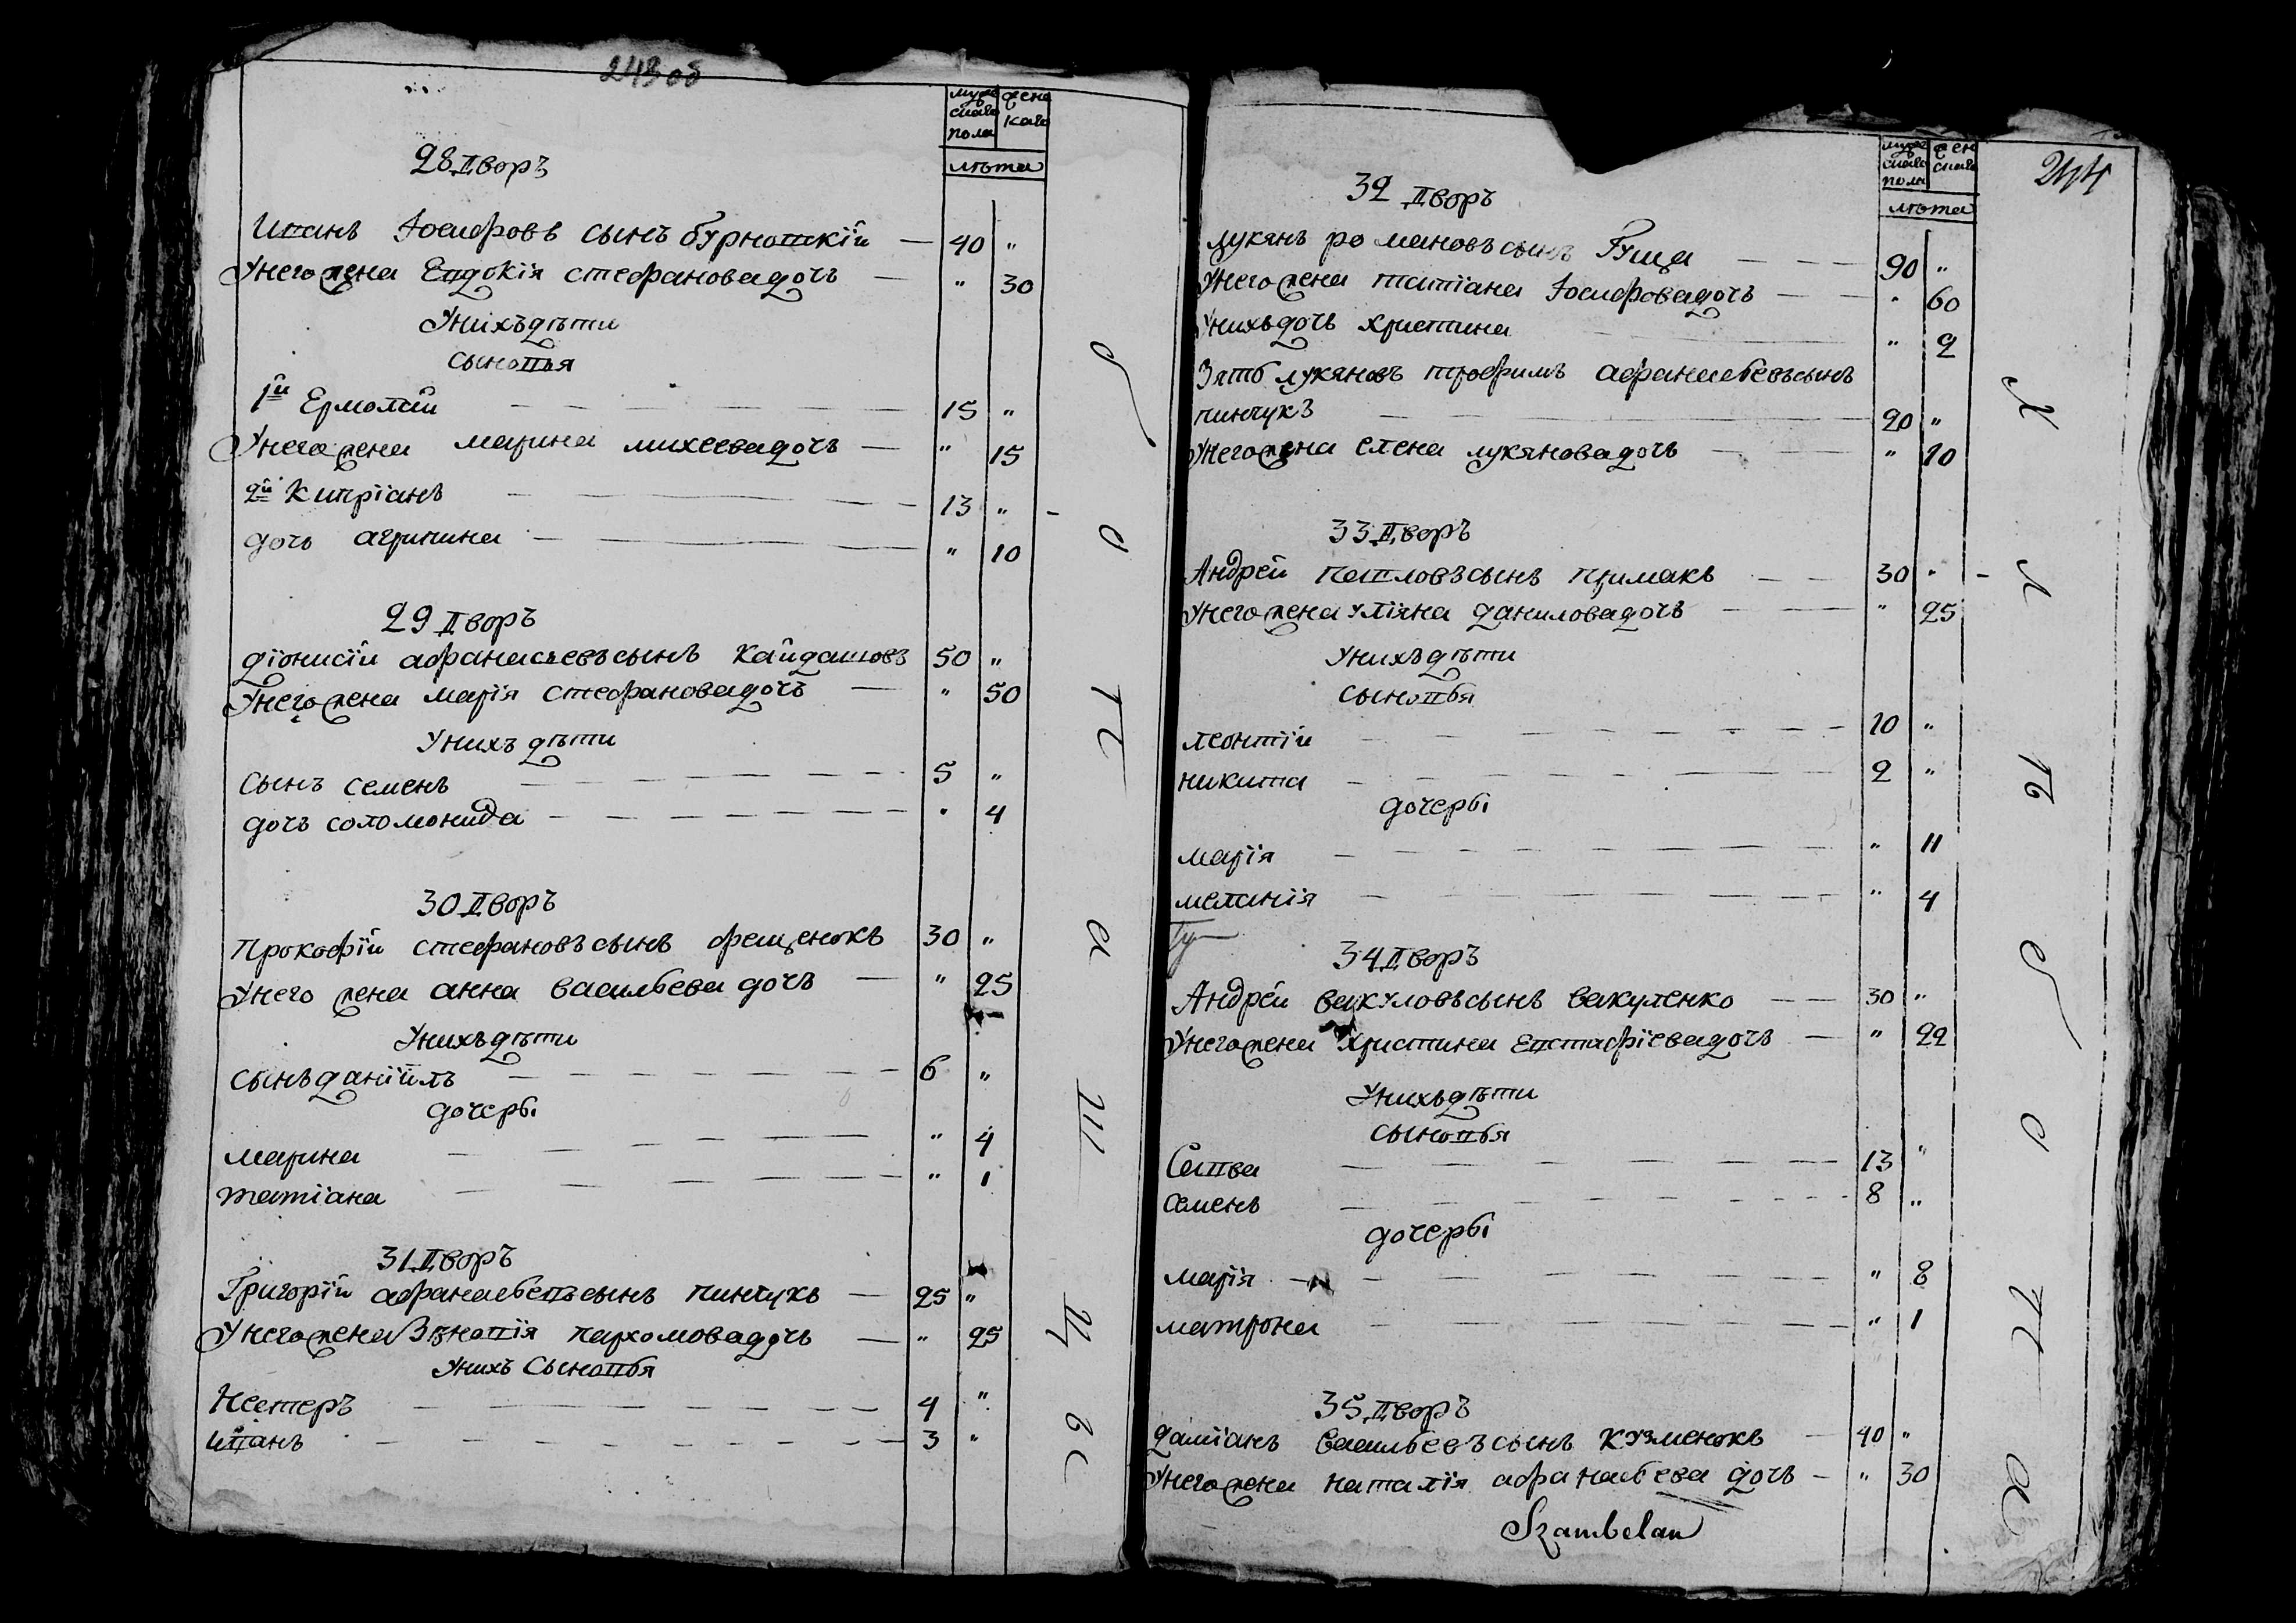 243 об
мужеска пола женска
лѣта
28 Дворъ
Иванъ Іосифовъ сынъ Бурновскій — 40 „
У него жена Евдокія Стефанова дочь — „ 30
У нихъ дѣти
сыновья
1й Ермолай — 15 „
У него жена марина михеева дочь — „ 15
2й Кипріанъ — 13 „
дочь агрипина — „ 10
29 Дворъ
діонисій афанасьевъ сынъ Кайдашовъ 50 „
У него жена марія стефанова дочь — „ 50
У нихъ дѣти
сынъ семенъ — 5 „
дочь соломонида — „ 4
30 Дворъ
Прокофій стефановъ сынъ фещенокъ 30 „
У него жена анна васильева дочь — „ 25
У нихъ дѣти
сынъ даніилъ — 6 „
дочеры
марина — „ 4
татіана — „ 1
31 Дворъ
Григорій афанасьевъ сынъ пинчукъ — 25 „
У него жена Зѣновія пархомова дочь — „ 25
У нихъ Сыновья
Нестеръ — 4 „
иванъ — 3 „
244
мужеска пола женска
лѣта
32 Дворъ
лукянъ романовъ сынъ Гуща — 90 „
У него жена татіана Іосифова дочь — „ 60
У нихъ дочь христина „ 2
Зять лукяновъ трофимъ афанасьевъ сынъ
пинчукъ — 20 „
У него жена елена лукянова дочь — „ 20
33 Дворъ
Андрей павловъ сынъ примакъ — 30 „
У него жена уліяна данилова дочь — „ 25
У нихъ дѣти
сыновья
леонтій — 10 „
никита — 2 „
дочеры
марія — „ 11
меланія — „ 4
34 Дворъ
Андрей вакуловъ сынъ вакуленко — 30 „
У него жена христина Евстафіева дочь — „ 22
У нихъ дѣти
сыновья
Савва — 13 „
семенъ — 8 „
дочеры
марія — „ 8
матрона — „ 1
35 Дворъ
даміанъ васильевъ сынъ кузменокъ — 40 „
У него жена наталія афанасьева дочь — „ 30
Szambelan